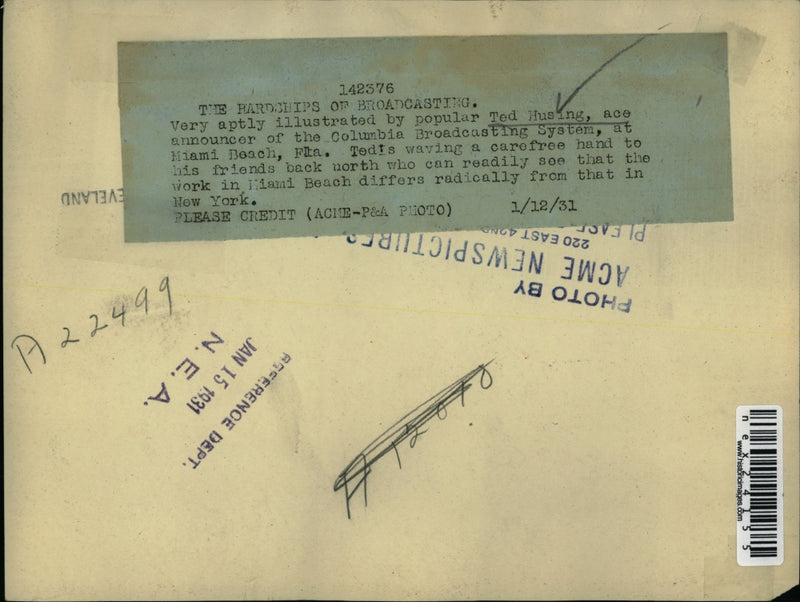 142376
THE HARDSHIPS OF BROADCASTING.
Very aptly illustrated by popular Ted Husing, ace
announcer of the Columbia Broadcasting System, at
Miami Beach, Fla. Ted's waving a carefree hand to
his friends back north who can readily see that the
work in Miami Beach differs radically from that in
New York.
PLEASE CREDIT (ACME-P&A PHOTO) 1/12/31
EVELAND
PHOTO BY
ACME NEWSPICTURES
220 EAST 42ND
PLEASE
A 22499
REFERENCE DEPT.
JAN 15 1931
N. E. A.
nex24155
www.historicimages.com